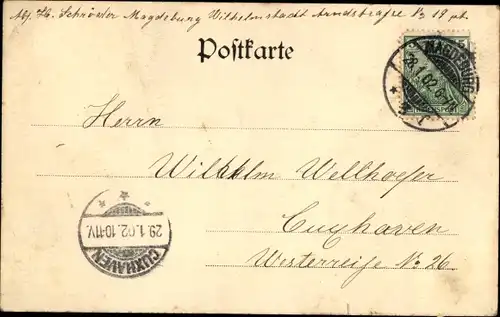 Abs. H. Schröder Magdeburg Wilhelmstadt Arndtstraße № 19 pt.
Postkarte
MAGDEBURG
28.1.02.6-7N.
Herrn
Wilhelm Wellhoefer
Cuxhaven
Westerreihe № 26.
29.1.02.10-11V.
CUXHAVEN